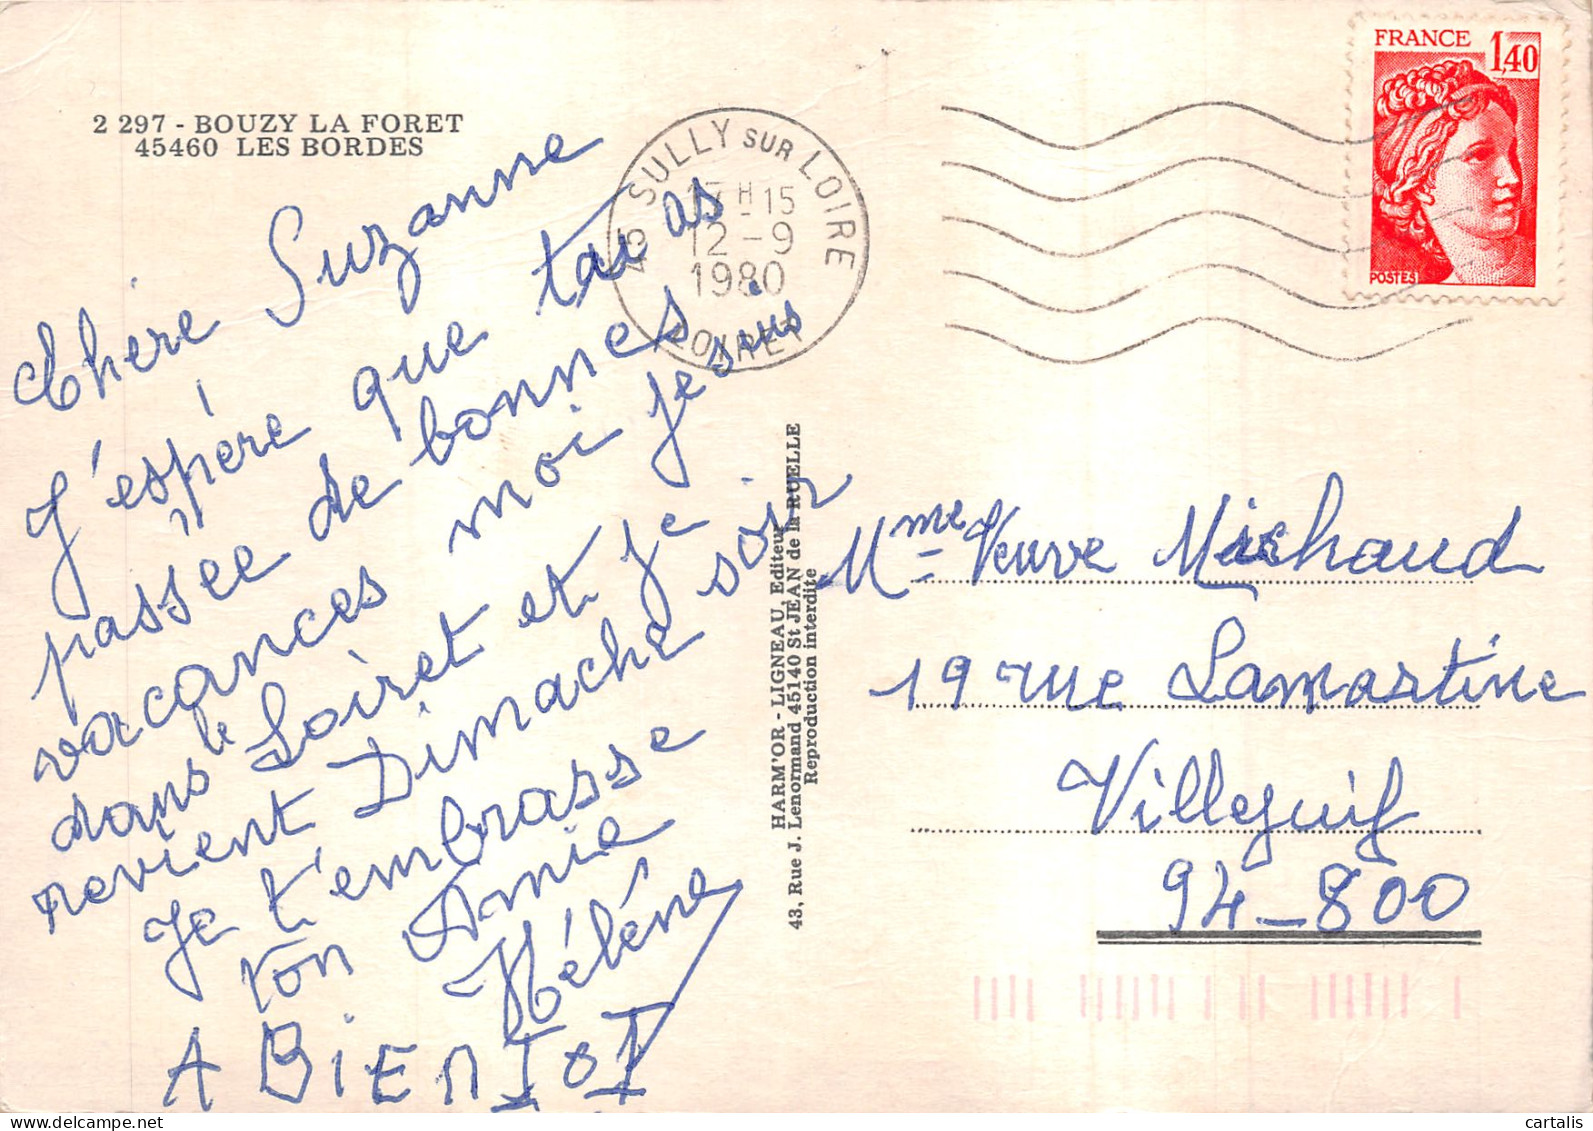 2 297 - BOUZY LA FORET
45460 LES BORDES
Chère Suzanne
J'espère que tu as
passée de bonnes
vacances moi je suis
dans le Loiret et je
revient Dimache soir
Je t'embrasse
ton Amie
Hélène
A BiENTOT
45 SULLY SUR LOIRE
17H-15
12-9
1980
LOIRET
FRANCE 1,40
POSTES
HARM'OR - LIGNEAU, Editeur
43, Rue J. Lenormand 45140 St JEAN de la RUELLE
Reproduction interdite
Mme Veuve Michaud
19 rue Lamartine
Villejuif
94-800
cartalis